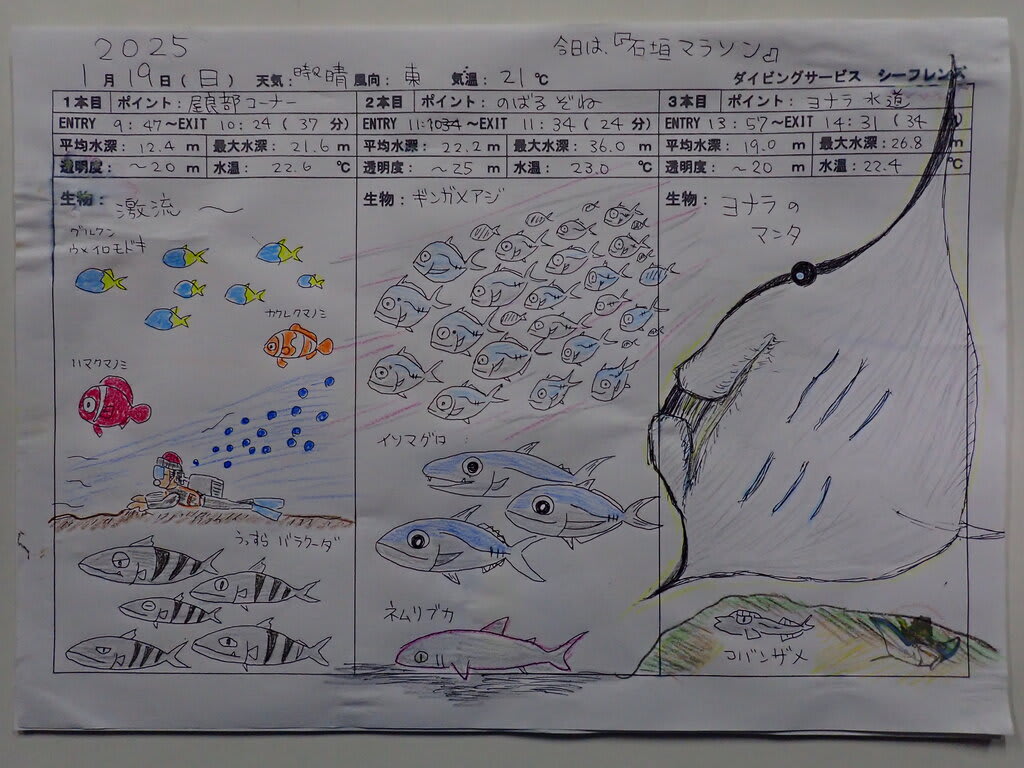 2025
今日は、『石垣マラソン』
1月19日(日) 天気:時々晴 風向:東 気温:21℃ ダイビングサービス シーフレンズ
1本目 ポイント:屋良部コーナー
ENTRY 9:47~EXIT 10:24(37分)
平均水深:12.4m 最大水深:21.6m
透明度:~20m 水温:22.6℃
生物:激流~
グルクン
ウメイロモドキ
カクレクマノミ
ハマクマノミ
うっすらバラクーダ
2本目 ポイント:のばるぞね
ENTRY 11:10~EXIT 11:34(24分)
平均水深:22.2m 最大水深:36.0m
透明度:~25m 水温:23.0℃
生物:ギンガメアジ
イソマグロ
ネムリブカ
3本目 ポイント:ヨナラ水道
ENTRY 13:57~EXIT 14:31(34
平均水深:19.0m 最大水深:26.8m
透明度:~20m 水温:22.4
生物:ヨナラの
マンタ
コバンザメ